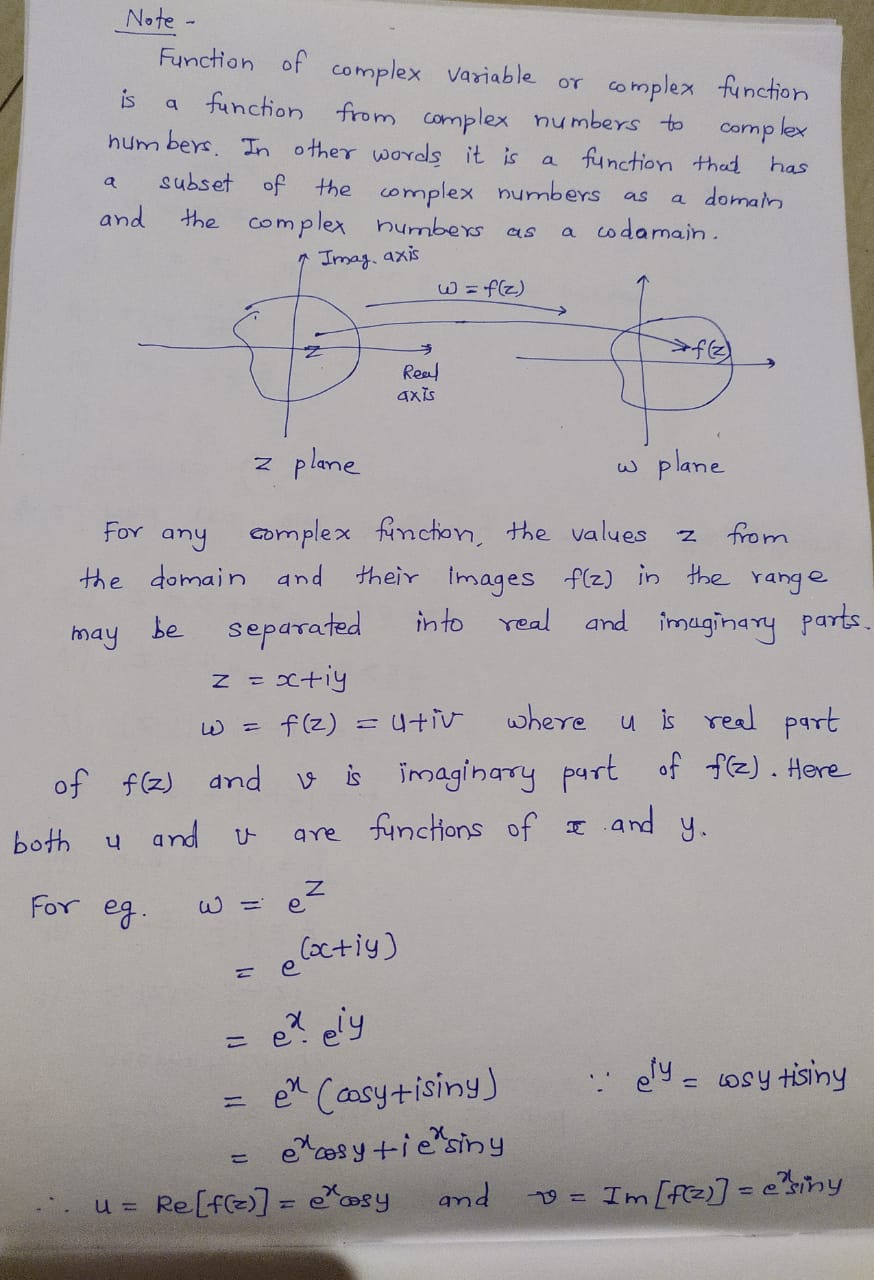 Note -
Function of complex variable or complex function
is a function from complex numbers to complex
numbers. In other words it is a function that has
a subset of the complex numbers as a domain
and the complex numbers as a codamain.
Imag. axis
w = f(z)
z
f(z)
Real
axis
z plane
w plane
For any complex function, the values z from
the domain and their images f(z) in the range
may be separated into real and imaginary parts.
z = x+iy
w = f(z) = u+iv where u is real part
of f(z) and v is imaginary part of f(z). Here
both u and v are functions of x and y.
For eg. w = e^z
= e^(x+iy)
= e^x. e^iy
= e^x (cosy+isiny) ∵ e^iy = cosy+isiny
= e^x cosy + i e^x siny
∴ u = Re[f(z)] = e^x cosy and v = Im [f(z)] = e^x siny